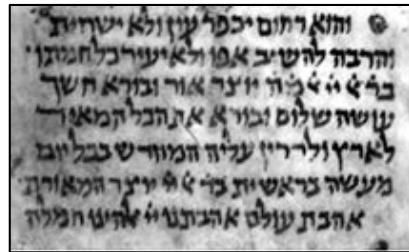 והוא רחום יכפר עון ולא ישחית
והרבה להשיב אפו ולא יעיר כל חמתו
יוצר אור ובורא חשך
עושה שלום ובורא את הכל המאיר
לארץ ולדרין עליה המחדש בכל יום
מעשה בראשית יוצר המאורת
אהבת עולם אהבתנו יי אלהינו חמלה